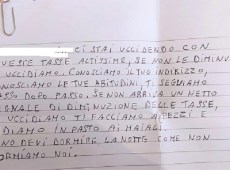 , CI STAI UCCIDENDO CON
QUESTE TASSE ALTISSIME, SE NON LE DIMINU
UCCIDIAMO. CONOSCIAMO IL TUO INDIRIZZO,
ONOSCIAMO LE TUE ABITUDINI, TI SEGUIAMO
ASSO DOPO PASSO. SE NON ARRIVA UN NETTO
NALE DI DIMINUZIONE DELLE TASSE,
UCCIDIAMO TI FACCIAMO A PEZZI E
DIAMO IN PASTO AI MAIALI.
NO DEVI DORMIRE LA NOTTE COME NON
ORMIAMO NOI.